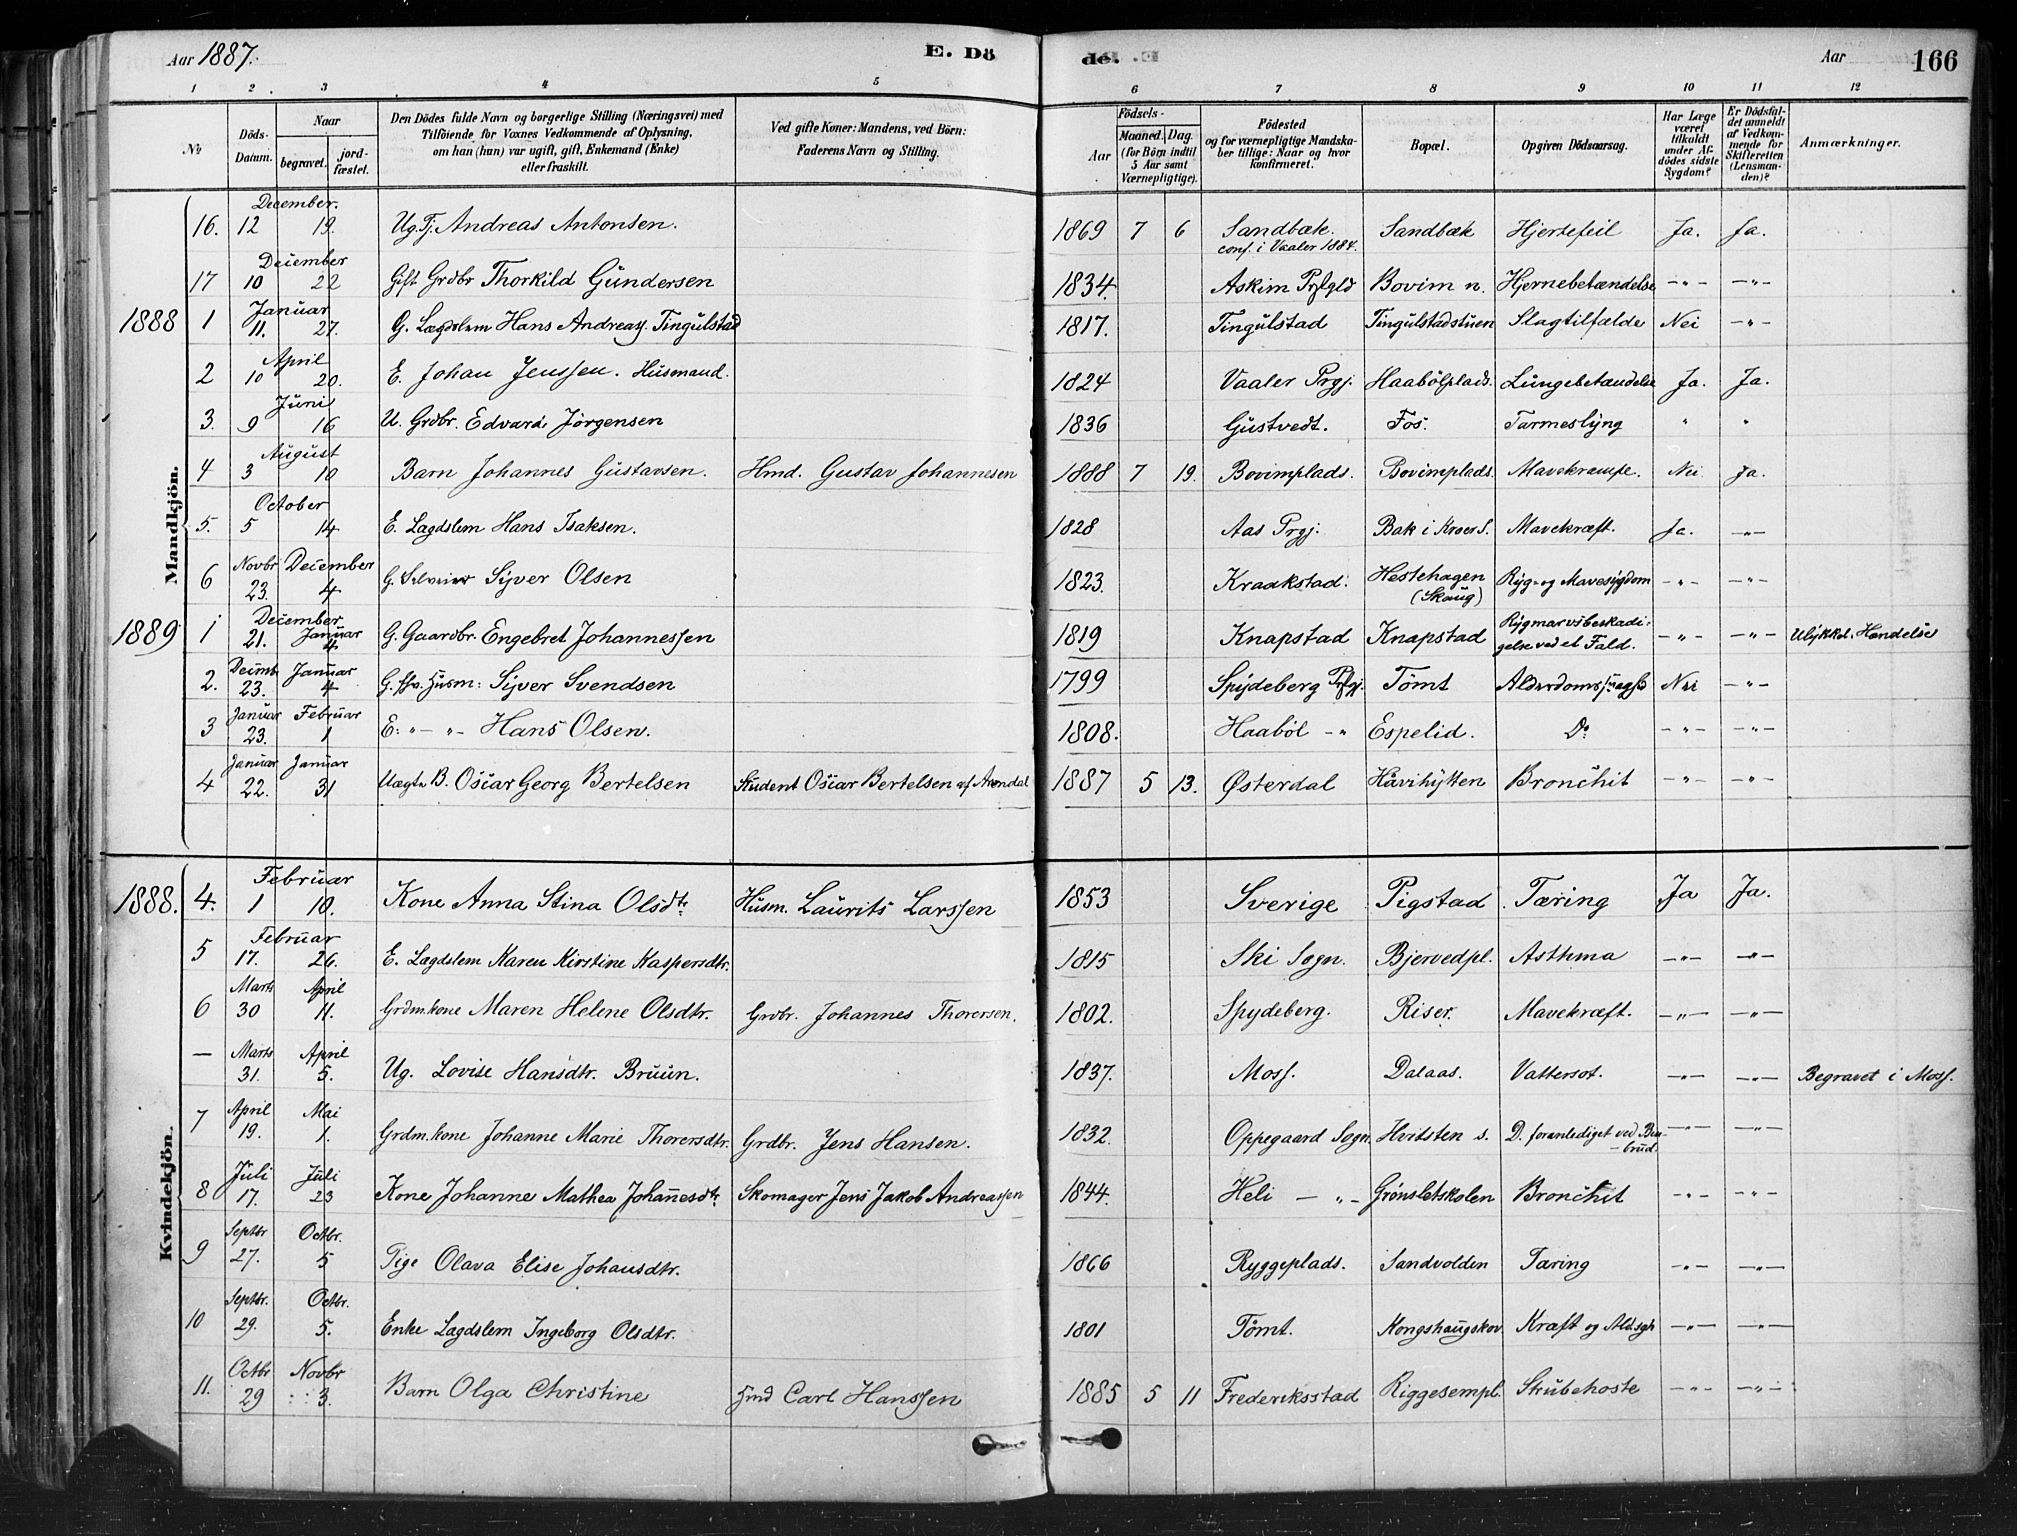 Aar 1887. E. Dö de. Aar 166
1 2. 3 4 5 6 7 8 9 10 11 12
№ Döds-Datum. Naar begravet. jordfæstet. Den Dödes fulde Navn og borgerlige Stilling (Næringsvei) med Tilföiende for Voxnes Vedkommende af Oplysning, om han (hun) var ugift, gift, Enkemand (Enke) eller fraskilt. Ved gifte Koner: Mandens, ved Börn: Faderens Navn og Stilling. Födsels- Aar Maaned. Dag. (for Börn indtil 5 Aar samt Værnepligtige). Födested og for værnepligtige Mandskaber tillige: Naar og hvor konfirmeret. Bopæl. Opgiven Dödsaarsag. Har Læge været tilkaldt under Afdödes sidste Sygdom? Er Dödsfaldet anmeldt af Vedkommende for Skifteretten (Lensmanden)? Anmærkninger.
Mandkjön.
December.
16. 12 19. Ug. Tj. Andreas Antonsen. 1869 7 6 Sandbæk. conf. i Vaaler 1884. Sandbæk Hjertefeil Ja. Ja.
December
17 10 22 Gift Grdbr Thorkild Gundersen 1834. Askim Prgld Bovim n. Hjernebetændelse -"- -"-
Januar
1888 1 11. 27. G. Lægdslem Hans Andreas. Tingulstad 1817. Tingulstad Tingulstadstuen Slagtilfælde Nei -"-
April
2 10 20. E. Johan Jenssen. Husmand. 1824 Vaaler Prgj. Haabölplads. Lungebetændelse Ja. Ja.
Juni
3. 9 16 U. Grdbr. Edvard Jörgensen 1836 Gustvedt. Fos. Tarmeslyng " "
August
4 3 10 Barn Johannes Gustavsen. Hmd. Gustav Johannesen 1888 7 19. Bovimplads. Bovimplads. Mavekrampe. Nei Ja.
October
5. 5 14 E. Lagdslem Hans Isaksen. 1828 Aas Prgj. Bak i Kroer S. Mavekræft. Ja. -"-
6 Novbr 23. December 4 G. Sijver Olsen 1823. Kraakstad. Hestehagen (Skaug) Ryg- og Mavesygdom -"- -"-
1889 1 December 21. Januar 4 G. Gaardbr. Engebret Johannessen 1819 Knapstad Knapstad Rygmarvsbeskadigelse ved et Fald. -"- -"- Ulykkel. Hændelse
2. Decmb. 23. Januar 4 G. Husm: Sijver Svendsen 1799 Spydeberg Prgj. Tömt Alderdomssvaghed Nei -"-
3 Januar 23. Februar 1 E: "-"- Hans Olsen. 1808. Haaböl -" Espelid. Do -"- -"-
4 Januar 22. Januar 31 Uægte B. Oscar Georg Bertelsen Student Oscar Bertelsen af Arendal 1887 5 13. Østerdal Håvihytten Bronchit -"- -"-
Kvindekjön.
Februar
1888. 4. 1 10. Kone Anna Stina Olsdtr Husm. Laurits Larssen 1853 Sverige Pigstad Tæring Ja Ja.
Februar
5 17. 26. E. Lagdslem Karen Kirstine Kaspersdtr. 1815 Ski Sogn. Bjervedpl. Asthma -"- -"-
6 Marts 30 April 11. Grdm.kone Maren Helene Olsdtr. Grdbr. Johannes Thorersen. 1802. Spydeberg. Riser. Mavekræft. -"- -"-
— Marts 31. April 5. Ug. Lovise Hansdtr. Bruun. 1837. Moss. Dalaas. Vattersot. -"- -"- Begravet i Moss.
7 April 19. Mai 1. Grdm.kone Johanne Marie Thorersdtr. Grdbr. Jens Hansen. 1832. Oppegaard Sogn. Hvitsten s. D. foranlediget ved Benbrud. -"- -"-
8 Juli 17. Juli 23 Kone Johanne Mathea Johannesdtr. Skomager Jens Jakob Andreassen 1844. Heli -"- Grönsletskolen Bronchit -"- -"-
9 Septbr 27. Octbr. 5 Pige Olava Elise Johansdtr. 1866 Ryggeplads. Sandvolden Tæring -"- -"-
10 Septbr. 29. Octbr. 5. Enke Lagdslem Ingeborg Olsdtr. 1801 Tömt. Kongshaugskov Kræft og Ald.sgh -"- -"-
11. Octbr 29 Novbr 3. Barn Olga Christine Hmd Carl Hanssen 1885 5 11 Frederiksstad Riggesempl. Strubehoste -"- -"-